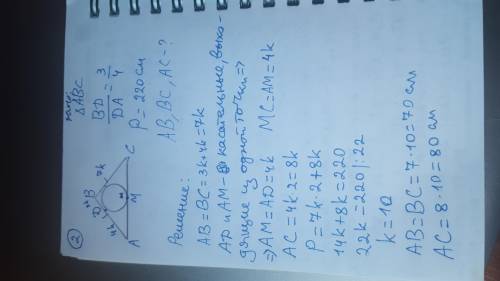 ②
р/и
△ABC
BD/DA = 3/4
P = 220 см
AB, BC, AC - ?
D
B
7k
4k
A
M
C
Решение:
AB = BC = 3k+4k = 7k
AD и AM - касательные, выхо-
дящие из одной точки =>
=> AM = AD = 4k MC = AM = 4k
AC = 4k·2 = 8k
P = 7k·2 + 8k
14k + 8k = 220
22k = 220 |:22
k = 10
AB = BC = 7·10 = 70 см
AC = 8·10 = 80 см